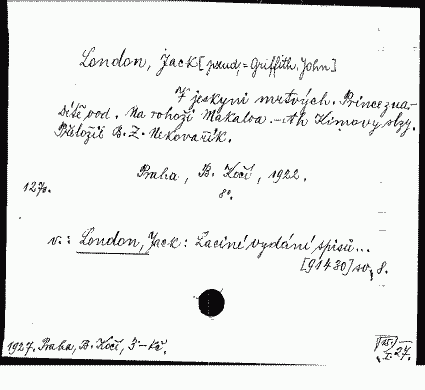 London, Jack [pseud. = Griffith, John]
V jeskyni mrtvých. Princezna.
Dítě vod. Na rohoži Makaloa. - Ah Kimovy slzy.
Přeložil B. Z. Nekovařík.
Praha, B. Kočí, 1922.
8°.
127 s.
v.: London, Jack: Laciné vydání spisů...
[91430] sv. 8.
1927. Praha, B. Kočí, 3 - Kč.
27.